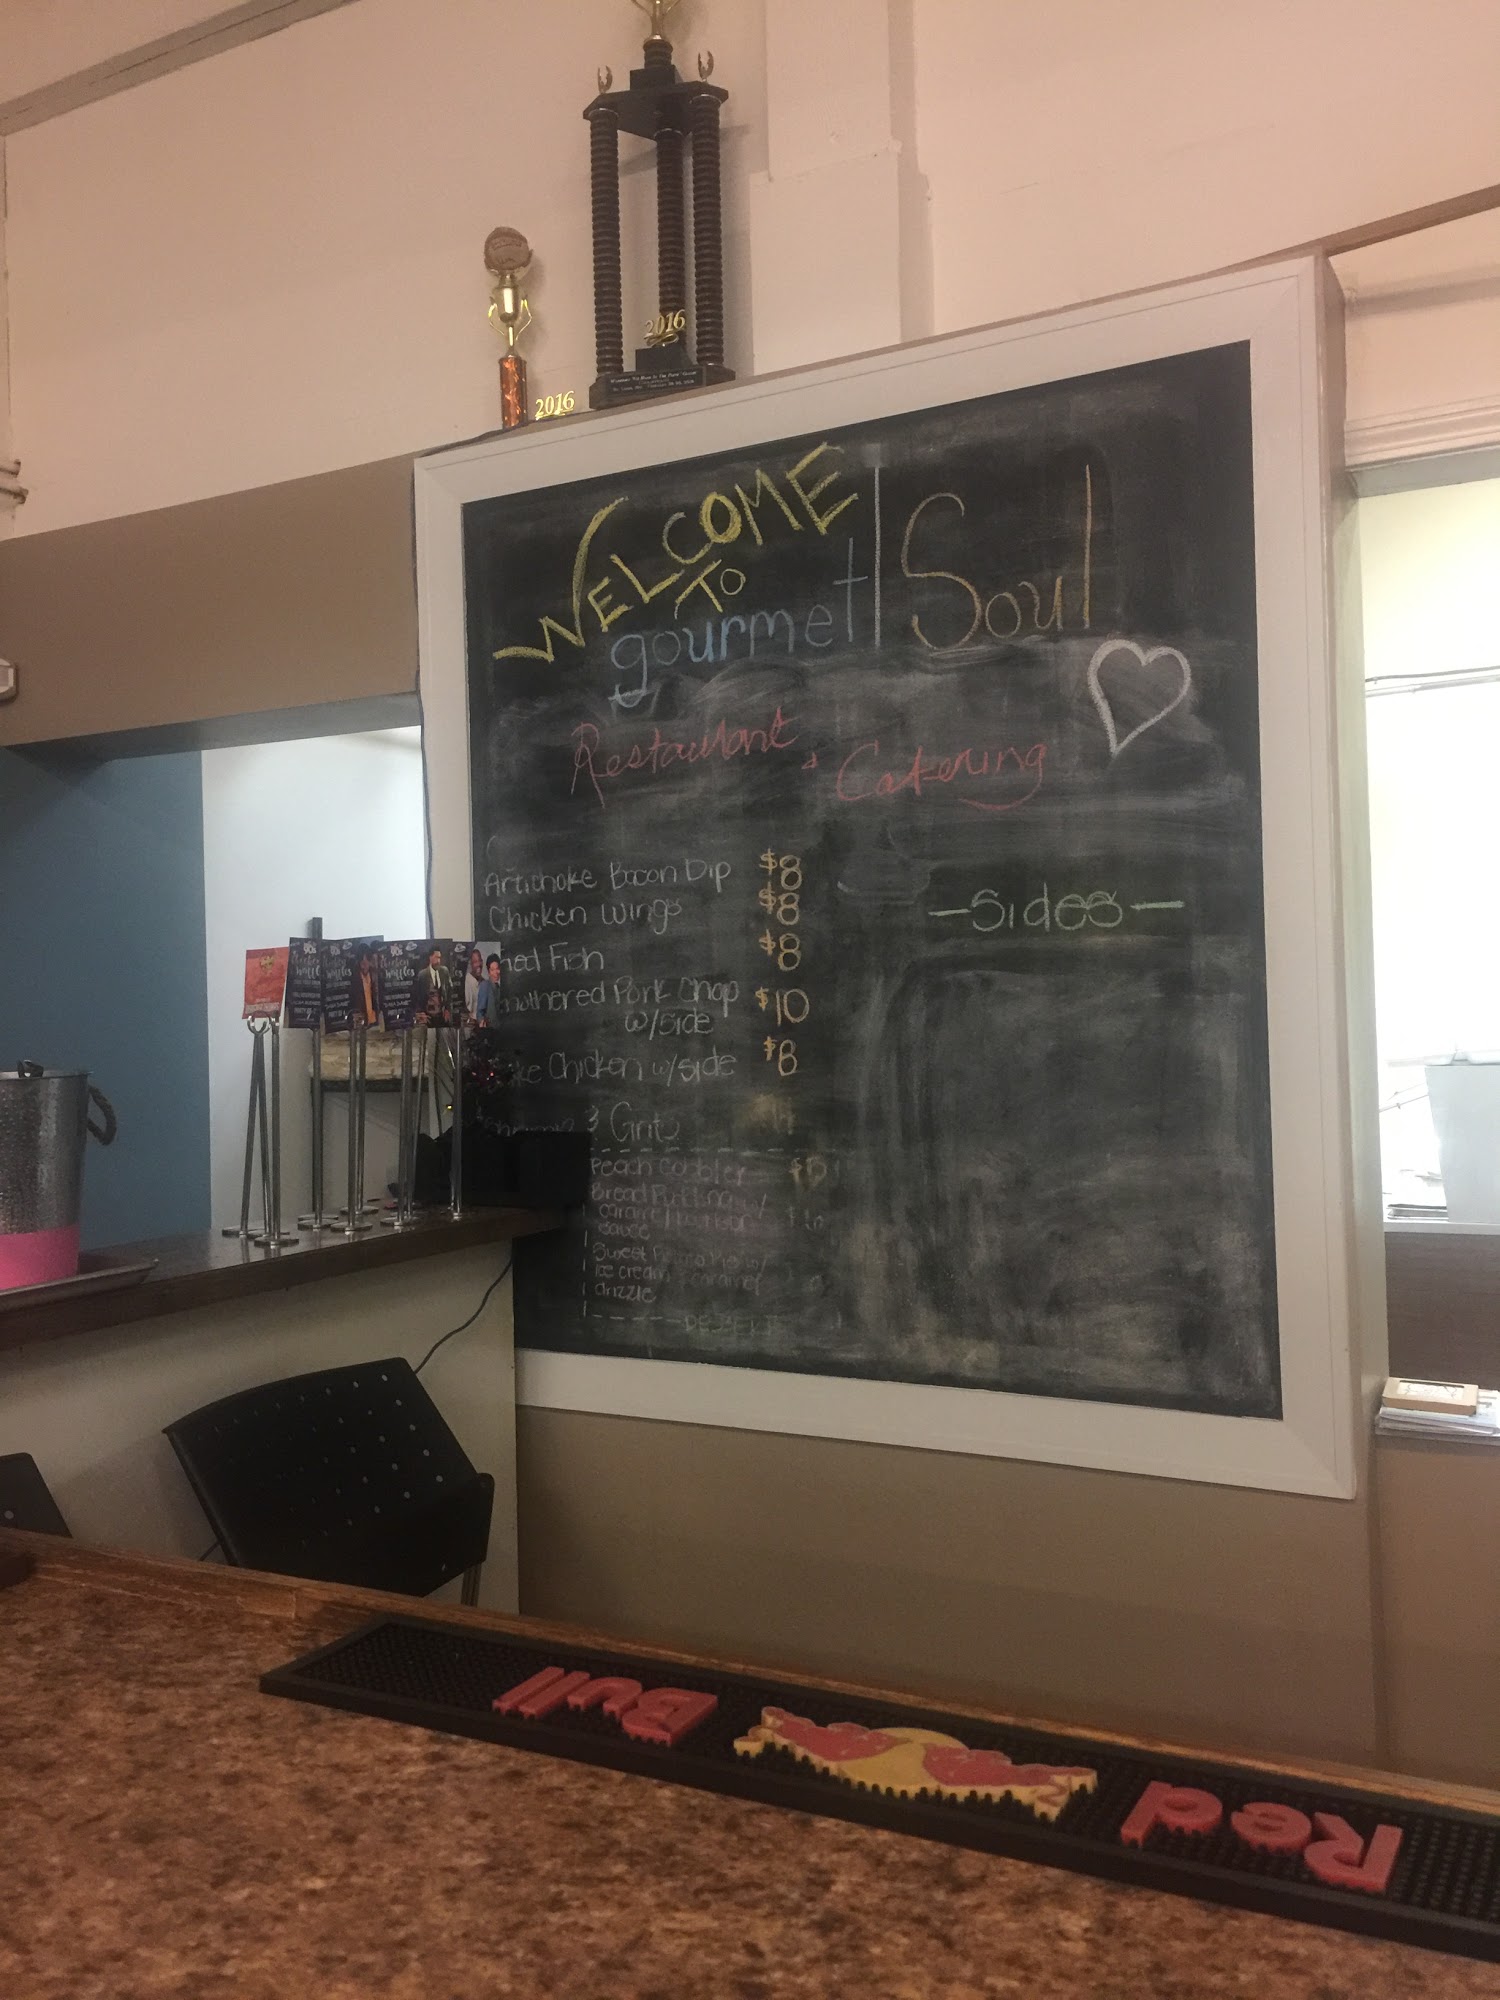 2016
2016
WELCOME
TO
gourmet | Soul
Restaurant & Catering
Artichoke Bacon Dip $8
Chicken Wings $8
Fish $8
Pork Chop $10
w/side
Chicken w/side $8
& Grits
Peach Cobbler
Bread Pudding w/
caramel
sauce
Sweet Potato Pie w/
ice cream & caramel
drizzle
DESSERT
-Sides-
Red Bull